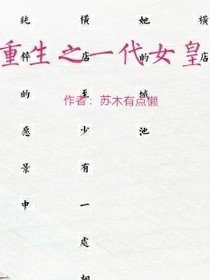 重生之一代女皇
作者：苏木有点懒
横店
她的城池
横店的至少有一处
粹的愿景中